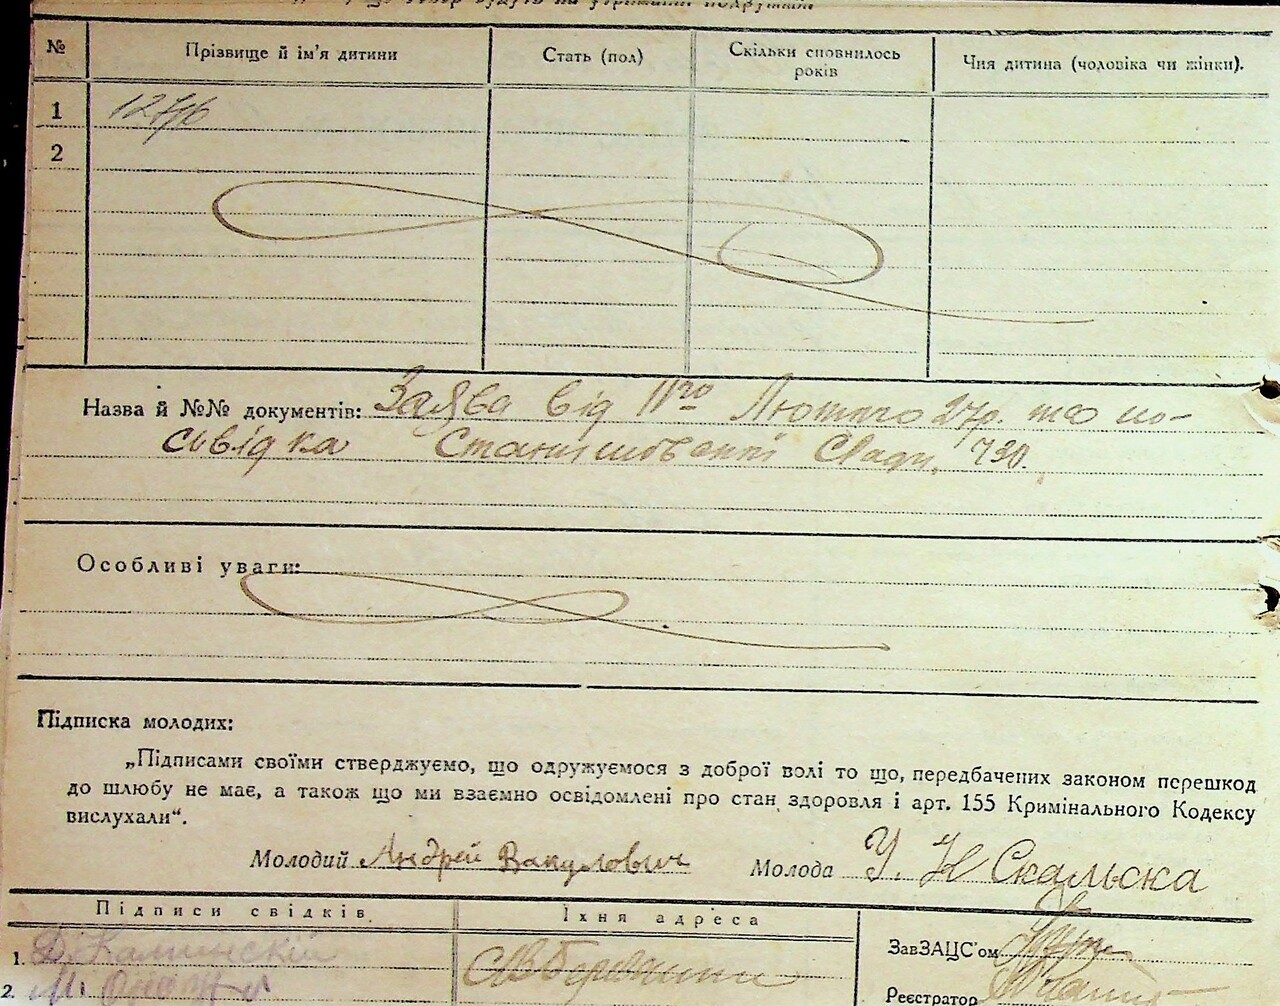 № Прізвище й ім'я дитини Стать (пол) Скільки сповнилось років Чия дитина (чоловіка чи жінки).
1
2
Назва й №№ документів: Заява від 11го Лютого 27р. та по-
свідка Сад. 730.
Особливі уваги:
Підписка молодих:
„Підписами своїми стверджуємо, що одружуємося з доброї волі то що, передбачених законом перешкод
до шлюбу не має, а також що ми взаємно освідомлені про стан здоровля і арт. 155 Кримінального Кодексу
вислухали“.
Молодий Андрей Вакулович Молода У. Н Скальска
Підписи свідків Їхня адреса
ЗавЗАЦС'ом
1. Д. Калинскій
2. М.
Реєстратор